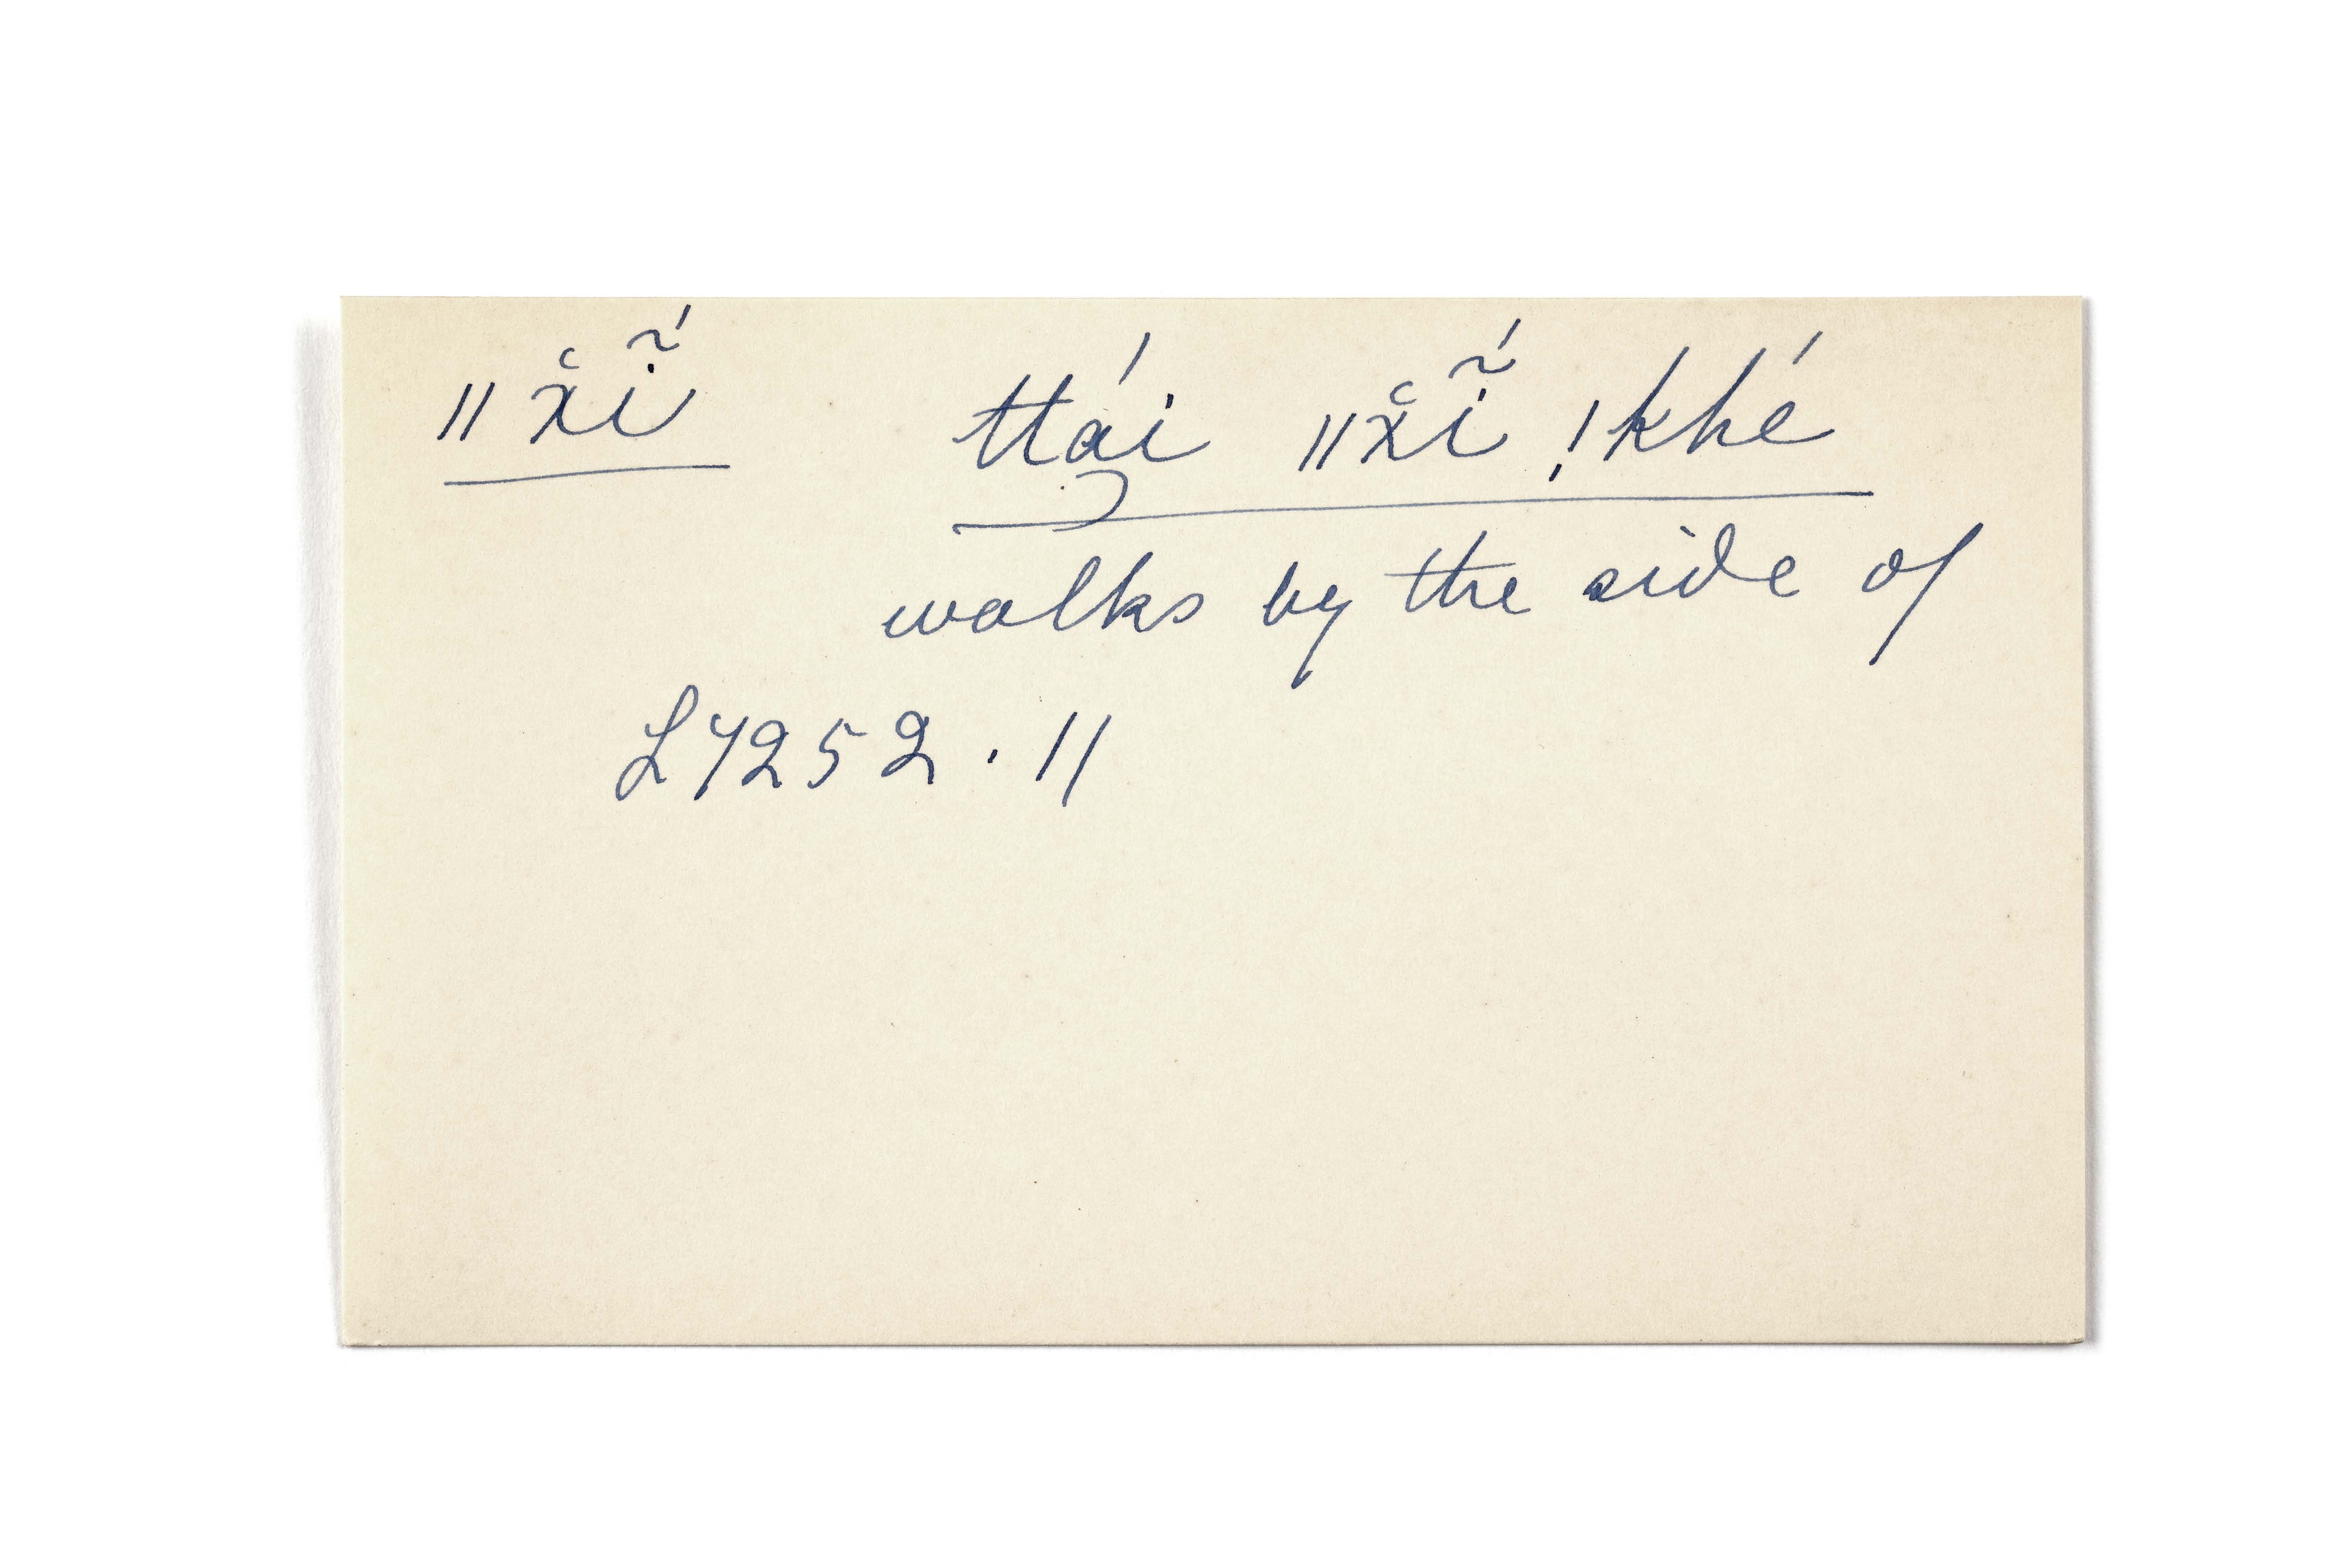 ǁx̌ĩ́ ttái ǁx̌ĩ́ !khé
walks by the side of
L7252.11